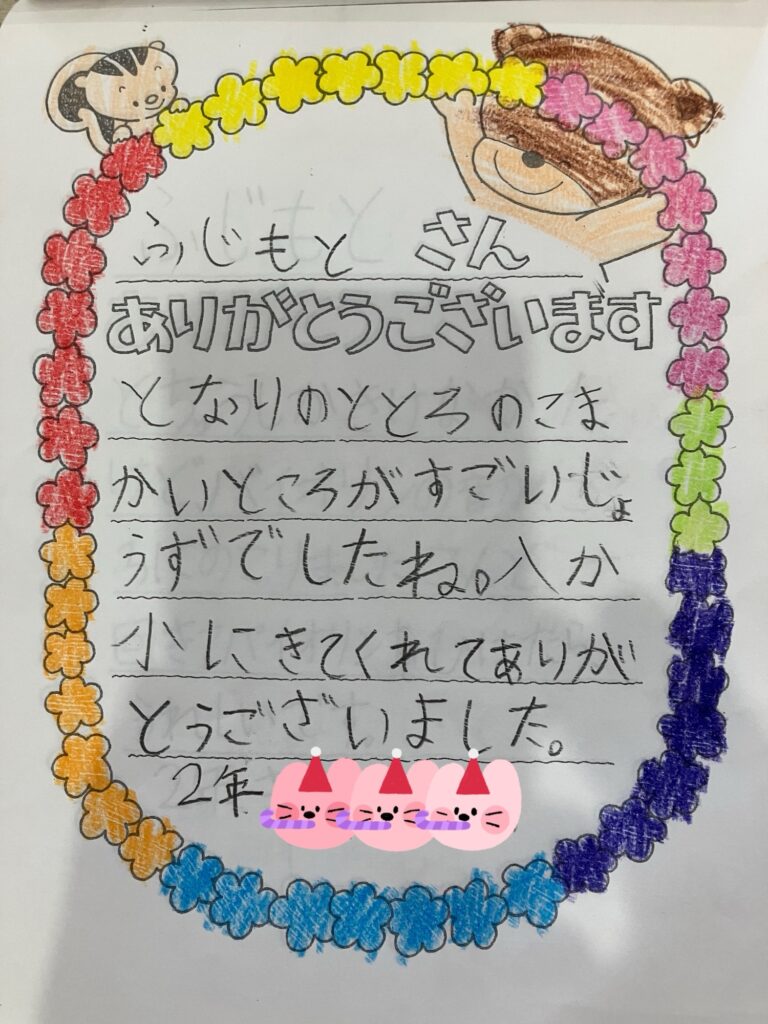 ふじもと さん
ありがとうございます
となりのととろのこま
かいところがすごいじょ
うずでしたね。八か
小にきてくれてありが
とうございました。
2年